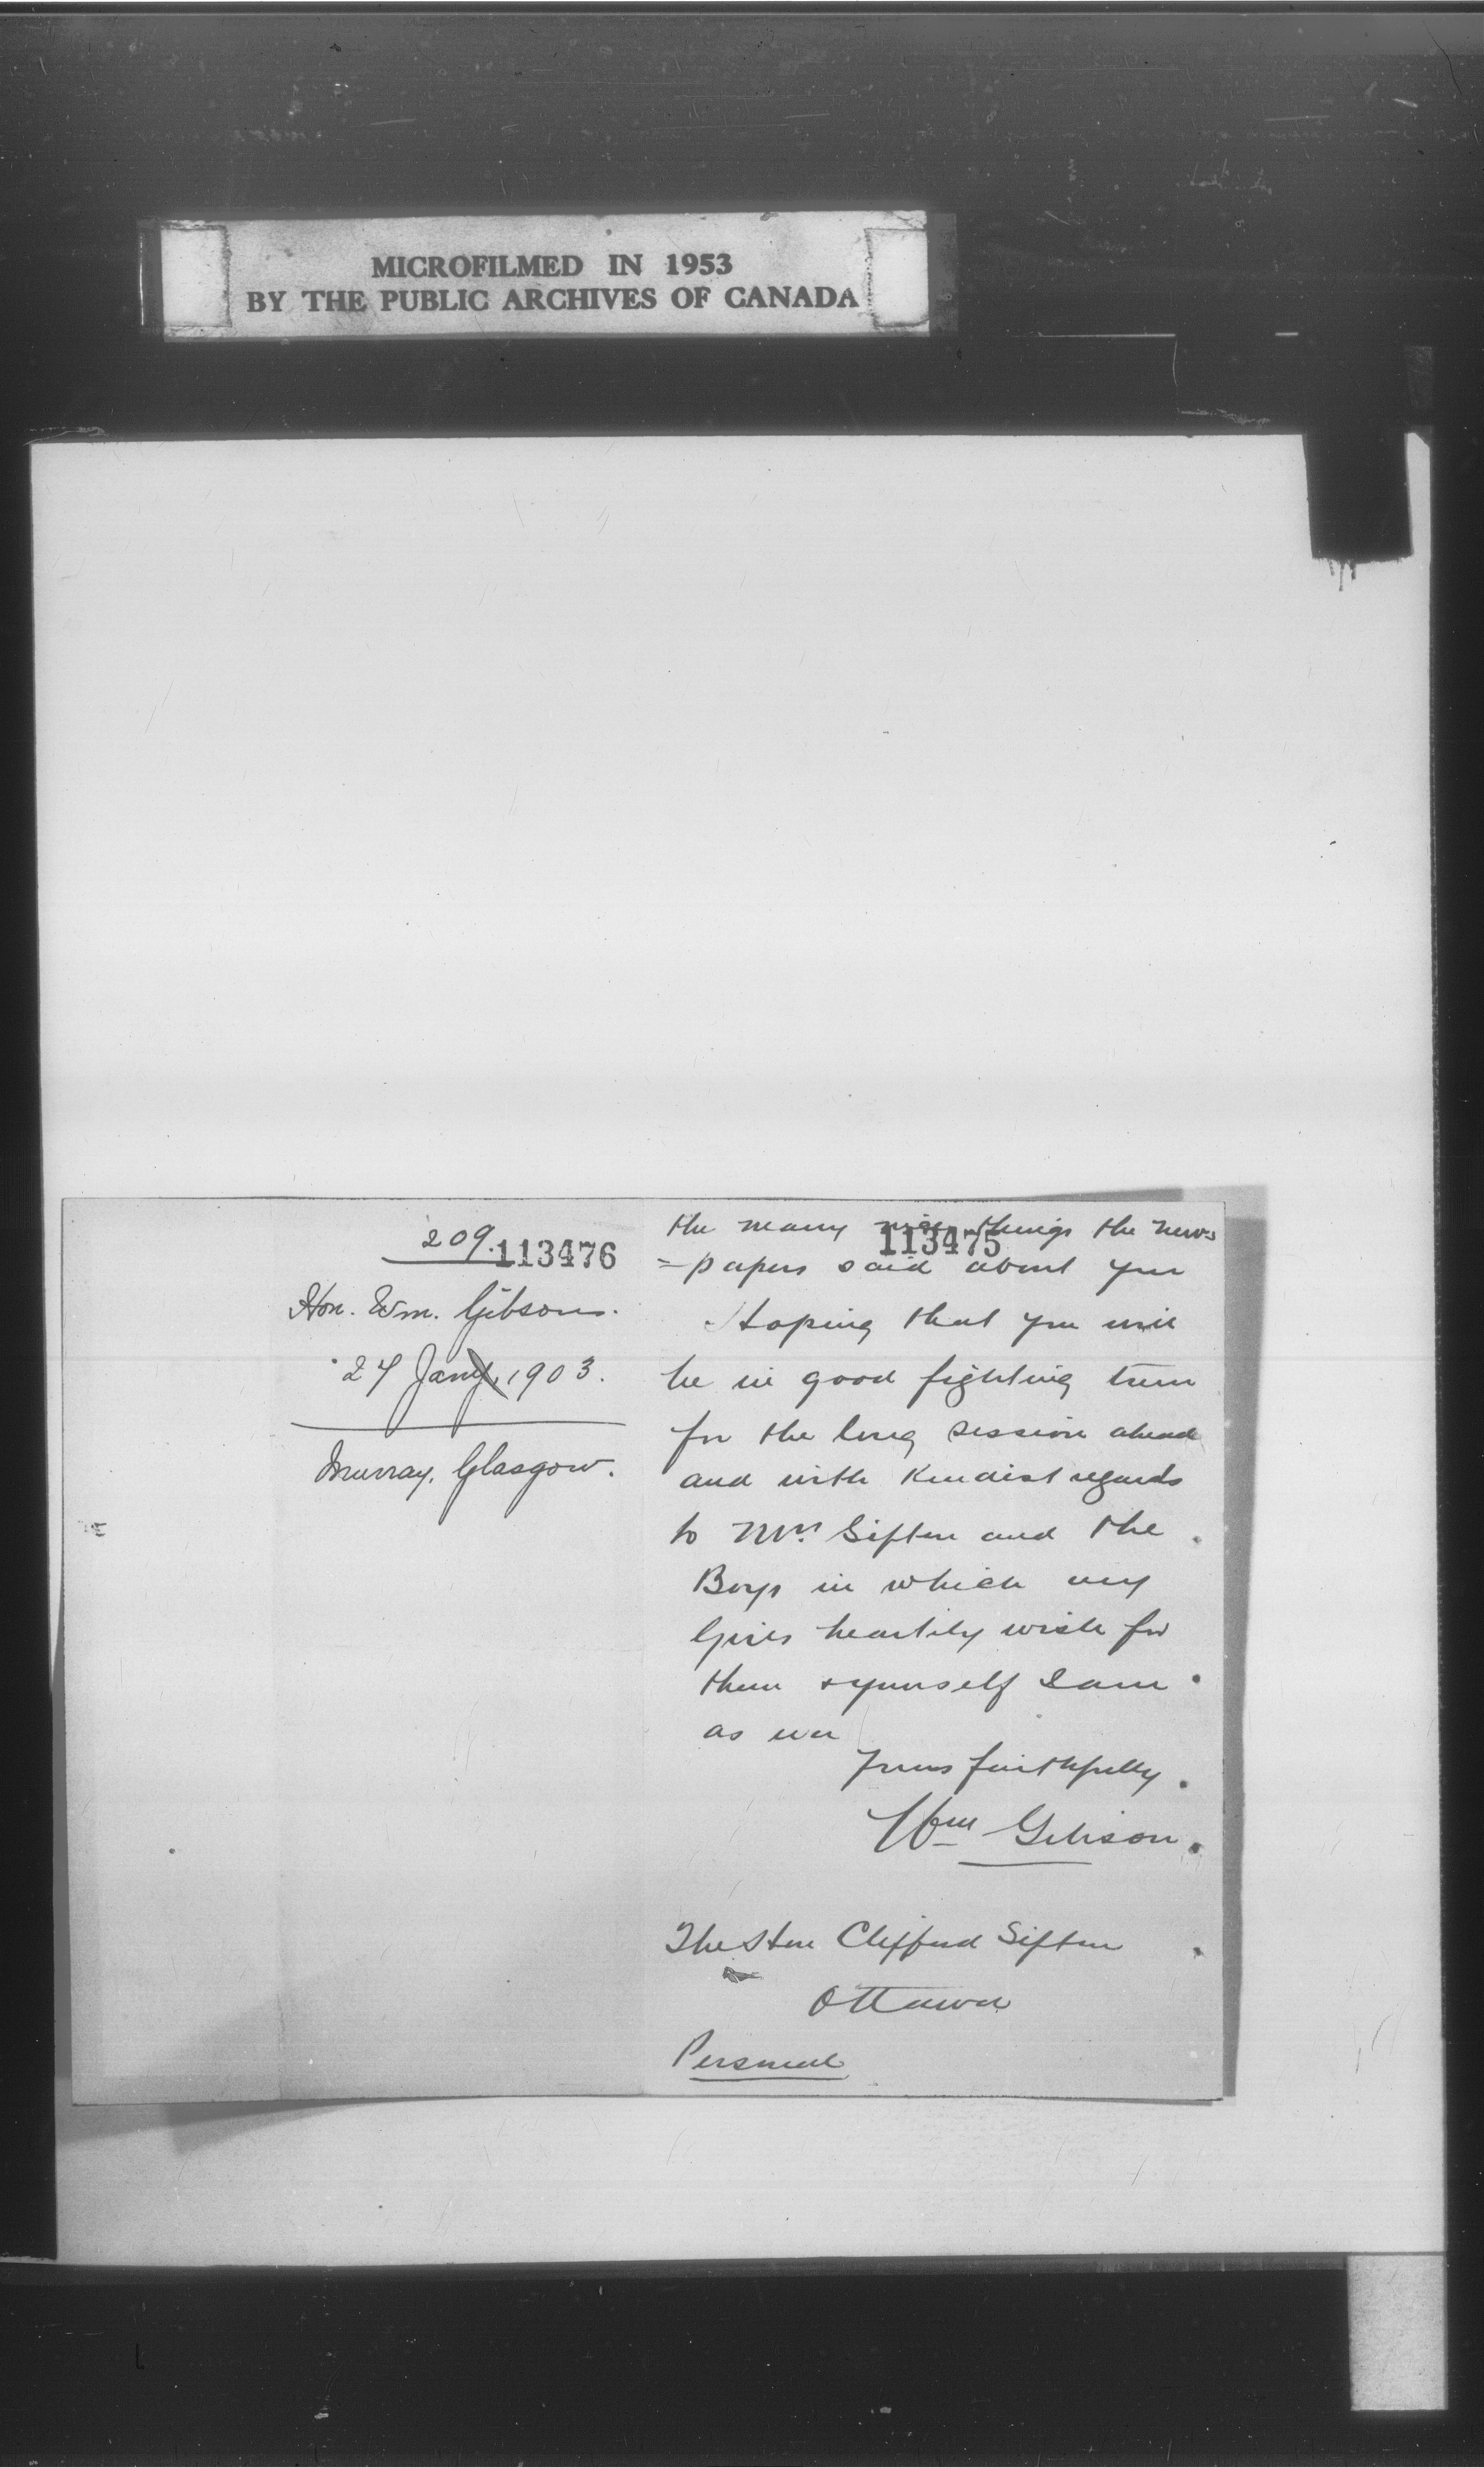 MICROFILMED IN 1953
BY THE PUBLIC ARCHIVES OF CANADA
209.
113476
Hon. Wm. Gibson.
27 Jany, 1903.
Murray, Glasgow.
113475
the many nice things the news
=papers said about you
Hoping that you will
be in good fighting trim
for the long session ahead
and with Kindist regards
to Mrs. Sifton and the
Boys in which my
Girls heartily wish for
them & yourself I am
as ever
Yours faithfully.
Wm Gibson.
The Hon Clifford Sifton
Ottawa
Personal